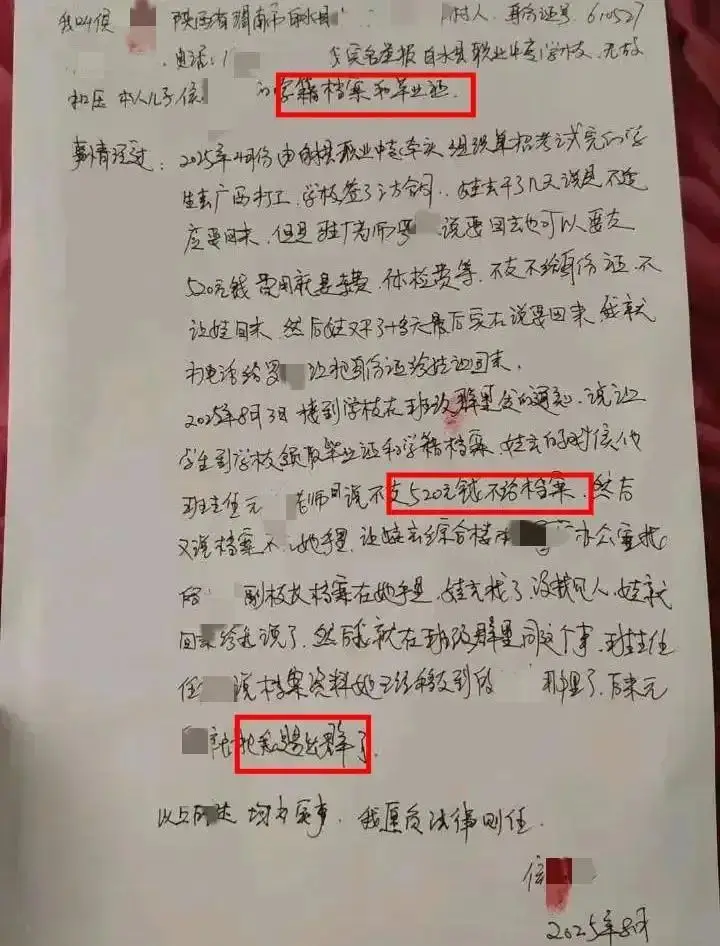 我叫侯 陕西省渭南市白水县 村人 身份证号 610527
电话:1 实名举报 白水县职业中专学校 无故
扣压 本人儿子侯 的学籍档案和毕业证.
事情经过: 2025年4月份 由白水县职业中专牵头 组织单招考试完的学
生去广西打工 学校签了三方合同. 娃去干了几天说是不适
应要回来. 但是驻厂老师罗 说要回去也可以要交
520元钱 费用就是车费. 体检费等. 不交不给身份证. 不
让娃回来. 然后娃又干了十多天最后实在说要回来 我就
打电话给罗 让把身份证给娃让回来.
2025年8月3日 接到学校在班级群里发的通知. 说让
学生到学校领取毕业证和学籍档案. 娃去的时候他
班主任元 老师说不交520元钱不给档案. 然后
又说档案不 她手里. 让娃去综合楼 办公室找
副校长档案在她手里. 娃去找了. 没找见人. 娃就
回来给我说了. 然后我就在班级群里问这个事. 班主任
任 说档案资料她已经移交到 那里了. 后来元
把我踢出群了.
以上 述 均为实事. 我愿负法律责任.
侯
2025年8月